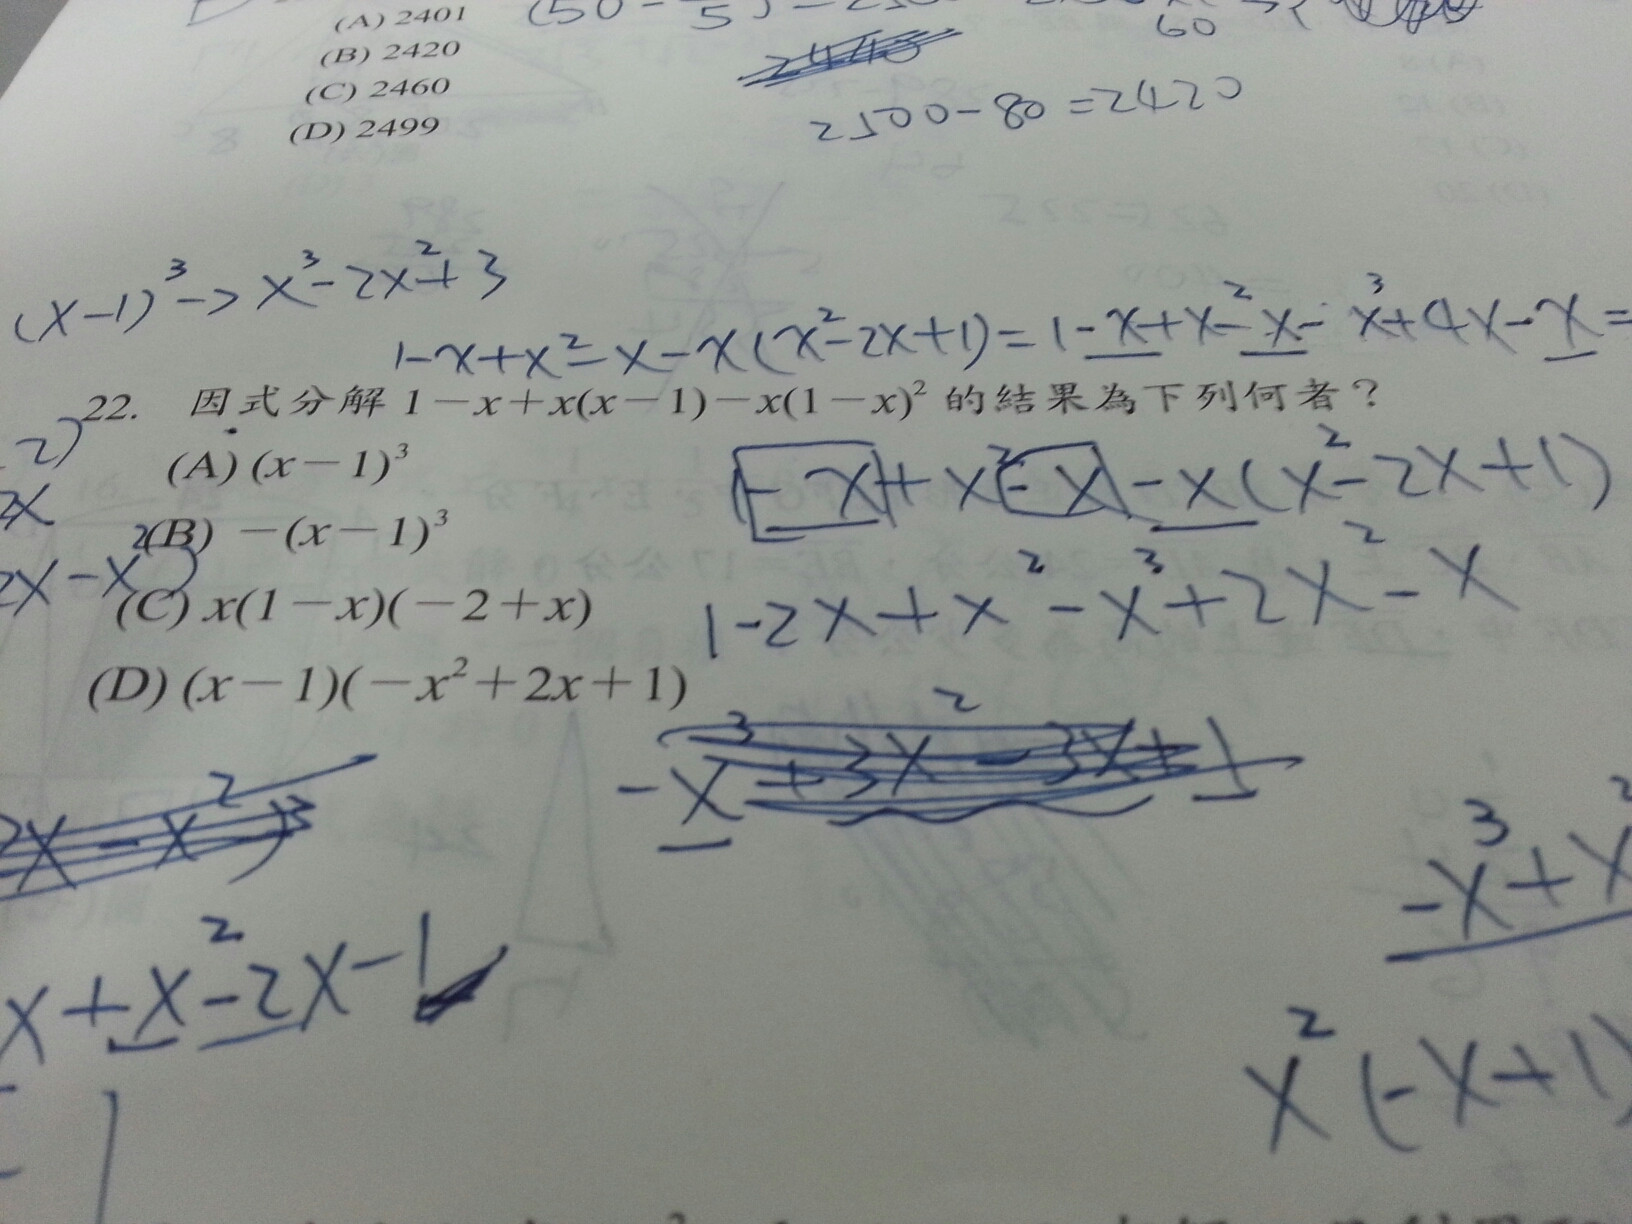 (A) 2401
(B) 2420
(C) 2460
(D) 2499
60
2500-80=2420
(x-1)³→x³-2x²+3
1-x+x²-x-x(x²-2x+1)=1-x+x²-x-x³+4x-x=
22. 因式分解 1－x＋x(x－1)－x(1－x)² 的結果為下列何者？
(A) (x－1)³
(B) －(x－1)³
(C) x(1－x)(－2＋x)
(D) (x－1)(－x²＋2x＋1)
1-x+x²-x-x(x²-2x+1)
1-2x+x²-x³+2x²-x
-x³+3x²-3x+1
2x-x²)
x+x²-2x-1
-x³+x²
x²(-x+1)